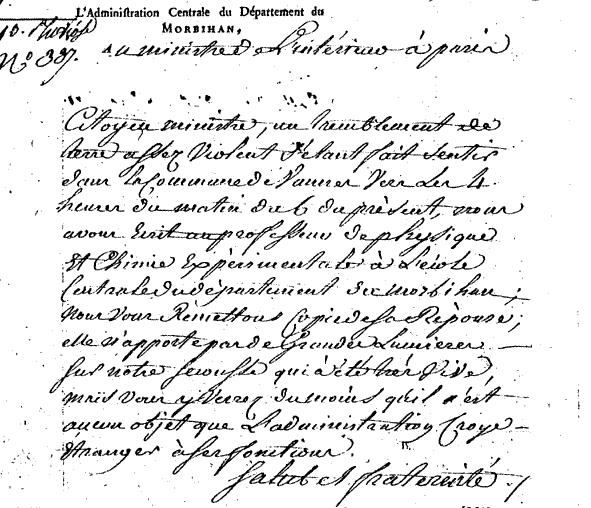 L'Administration Centrale du Département du
MORBIHAN,
N.° 337.
Au ministre de L'intérieur à paris
Citoyen ministre, un tremblement de
terre assez violent s'étant fait sentir
dans la Commune de Vannes vers les 4
heures du matin du 6 du présent, nous
avons Ecrit au professeur de physique
Et Chimie Expérimentale à L'école
Centrale du département du morbihan;
nous vous Remettons Copie de sa Réponse;
elle n'apporte pas de Grandes Lumières
sur notre secousse qui a été très vive,
mais vous y verrez du moins qu'il n'est
aucun objet que L'administration Croye
Etranger à ses fonctions.
Salut et fraternité ./